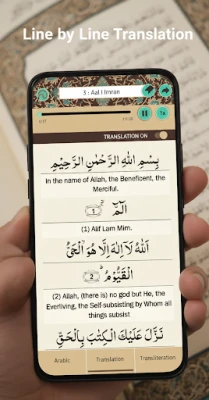 Line by Line Translation
3 : Aal I Imran
1x
TRANSLATION ON
بِسْمِ اللهِ الرَّحْمٰنِ الرَّحِيْمِ
In the name of Allah, the Beneficent, the
Merciful.
الٓمّٓ ۙ ١
(1) Alif Lam Mim.
اللهُ لَاۤ اِلٰهَ اِلَّا هُوَ الْحَىُّ
الْقَيُّوْمُ ٢
(2) Allah, (there is) no god but He, the
Everliving, the Self-subsisting by Whom all
things subsist
نَزَّلَ عَلَيْكَ الْكِتٰبَ بِالْحَقِّ
Arabic Translation Transliteration